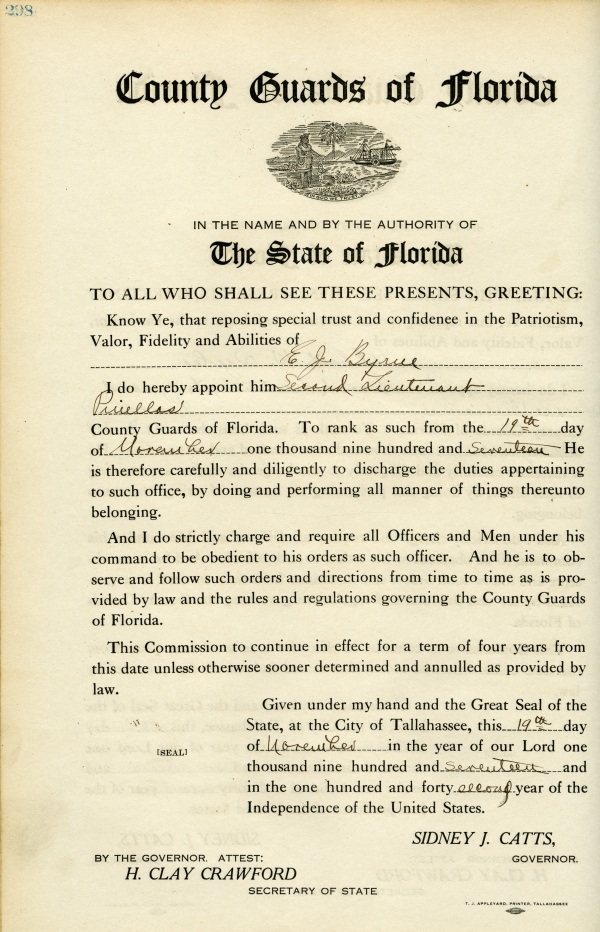 298
County Guards of Florida
IN GOD WE TRUST
IN THE NAME AND BY THE AUTHORITY OF
The State of Florida
TO ALL WHO SHALL SEE THESE PRESENTS, GREETING:
Know Ye, that reposing special trust and confidenee in the Patriotism,
Valor, Fidelity and Abilities of
E. J. Byrne
I do hereby appoint him Second Lieutenant
Pinellas
County Guards of Florida. To rank as such from the 19th day
of November one thousand nine hundred and Seventeen He
is therefore carefully and diligently to discharge the duties appertaining
to such office, by doing and performing all manner of things thereunto
belonging.
And I do strictly charge and require all Officers and Men under his
command to be obedient to his orders as such officer. And he is to ob-
serve and follow such orders and directions from time to time as is pro-
vided by law and the rules and regulations governing the County Guards
of Florida.
This Commission to continue in effect for a term of four years from
this date unless otherwise sooner determined and annulled as provided by
law.
Given under my hand and the Great Seal of the
State, at the City of Tallahassee, this 19th day
[SEAL] of November in the year of our Lord one
thousand nine hundred and seventeen and
in the one hundred and forty second year of the
Independence of the United States.
SIDNEY J. CATTS,
BY THE GOVERNOR. ATTEST: GOVERNOR.
H. CLAY CRAWFORD
SECRETARY OF STATE
T. J. APPLEYARD, PRINTER, TALLAHASSEE